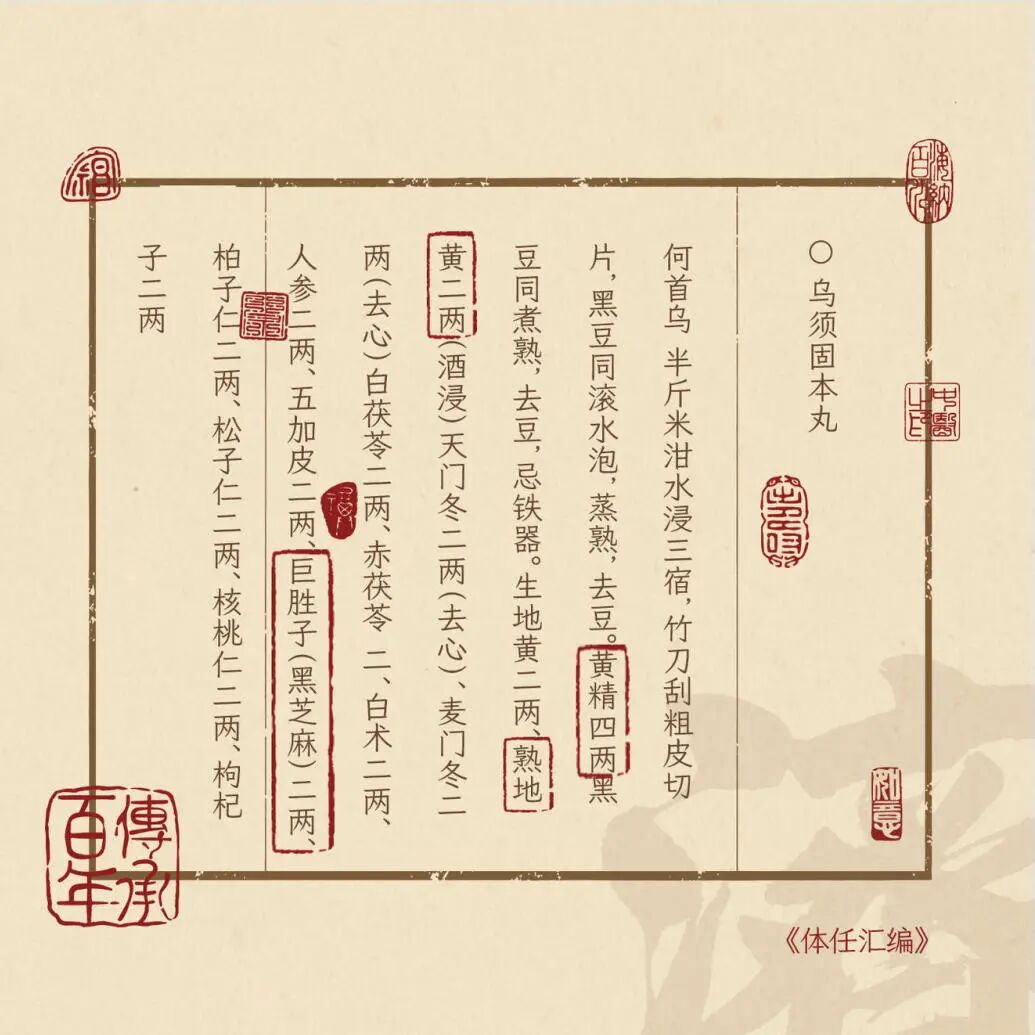 〇 乌须固本丸
何首乌 半斤米泔水浸三宿，竹刀刮粗皮切
片，黑豆同滚水泡，蒸熟，去豆。黄精四两黑
豆同煮熟，去豆，忌铁器。生地黄二两、熟地
黄二两（酒浸）天门冬二两（去心）、麦门冬二
两（去心）白茯苓二两、赤茯苓 二、白术二两、
人参二两、五加皮二两、巨胜子（黑芝麻）二两、
柏子仁二两、松子仁二两、核桃仁二两、枸杞
子二两
《体任汇编》
海纳百川
中醫之印
如意
傳承百年